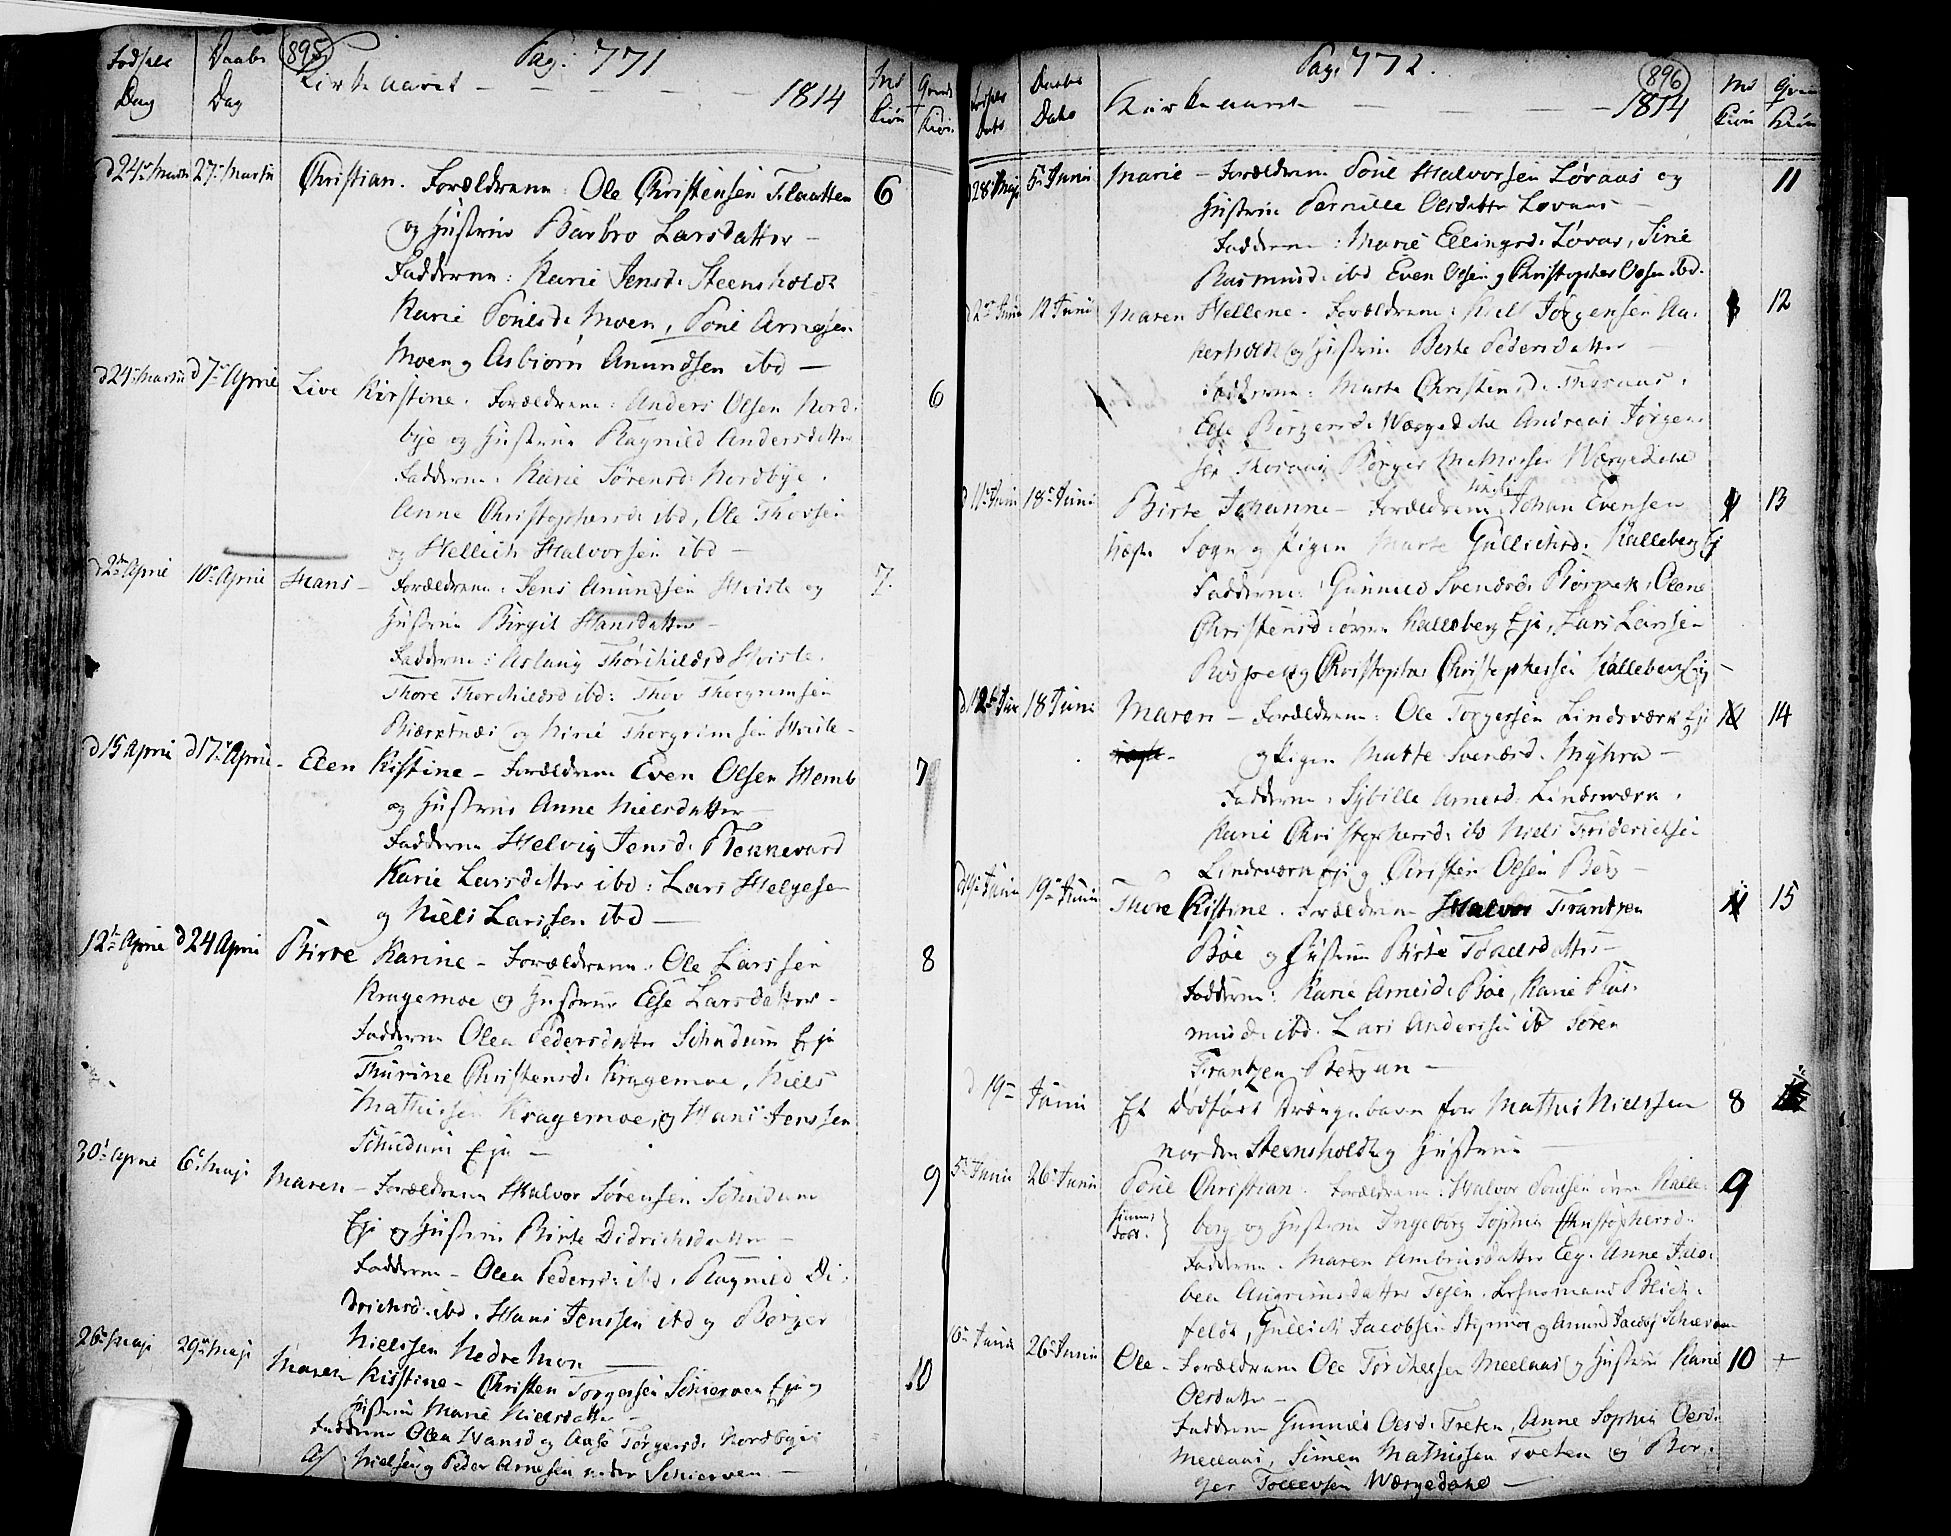 Fødsels Daabs 895 Pag. 771
Dag Dag Kirkeaaret 1814 Mk Kiøn Qvinde Kiøn
d 24 Martii 27 Martii Christian. Forældrene: Ole Christensen Flaatten 6
og Hustrue Barbro Larsdatter –
Fadderne: Karie Jensd. Steensholdt
Karie Poulsd. Moen, Poul Arnesen
Moen og Asbiørn Amundsen ibd –
d 24 Martii d 7 April Live Kirstine. Forældrene: Anders Olsen Nord- 6
bye og Hustrue Ragnild Andersdatter
Fadderne: Karie Sørensd. Nordbye.
Anne Christophersd. ibd, Ole Thovsen
og Hellich Halvorsen ibd –
d 2den April 10 April Hans – Forældrene: Jens Amundsen Hviste og 7.
Hustrue Birgit Hansdatter –
Fadderne: Aslaug Thorchildsd Hviste.
Thore Thorchildsd ibd: Thov Thorgrimsen
Biærknæs og Thorgrimsen Hviste –
d 15 April d 17 April – Elen Kistine – Forældrene Even Olsen Homb 7
og Hustrue Anne Nielsdatter –
Fadderne Helvig Jensd. Tennevard
Karie Larsdatter ibd: Lars Helgesen
og Niels Larssen ibd –
12 April d 24 April Birte Karine – Forældrene: Ole Larssen 8
Kragemoe og Hustrue Else Larsdatter –
Fadderne Olea Pedersdatter Schudum Eje
Thurine Christensd. Kragemoe, Niels
Mathissen Kragemoe, og Hans Jenssen
Schudum Eje –
30 April 6 Maji Maren – Forældrene Halvor Sørensen Schudum 9
Eje og Hustrue Birte Didrichsdatter –
Fadderne – Olea Pedersd: ibd. Ragnild Di-
drichsd. ibd. Hans Jenssen ibd og Børger
Nielssen Nedre Moen –
26 Maji 29 Maji Maren Kistine – Christen Torgersen Schierven Eje og 10
Hustrue Marie Nielsdatter –
Fadderne Olea Hansd og Aase Torgersd. Nordbye
Nielsen og Peder Arnesen nedre Schierven –
Pag. 772. 896
Fødsels Dato Daabs Dato Kirkeaaret 1814 Mk Kiøn Qvin Kiøn
d 28 Maji 5 Junii Marie – Forældrene Poul Halvorsen Løvaas og 11
Hustrue Pernille Olsdatter Løvaas –
Fadderne: Marie Ellingsd. Løvas, Sirie
Rasmusd. ibd Even Olsen og Christopher Olsen ibd.
d 2 Junii 12 Junii Maren Hellene – Forældrene: Niels Jørgensen Aa- 12
kerholdt og Hustrue Berte Pedersdatter
Fadderne: Marte Christensd. Thoraas.
Else Børgersd. Wærgedahl Andreas Jørgen-
sen Thoraas Børger Mathissen Wærgedahl
d 11 Junii 18 Junii Birte Johanne – Forældrene: Johan Evensen 13
Sogn og Pigen Marte Gullichsd. Kalleberg Ej
Fadderne: Gunnild Svendsd Rørpek, Olene
Christensd. øvre Kalleberg Eje, Lars Larsen
og Christopher Christophersen Kalleberg Eje –
d 12 Junii 18 Junii Maren – Forældrene: Ole Torgersen Lindeværk Eje 14
og Pigen Matte Sverdsd. Myhra –
Fadderne: Sybille Arnesd: Lindeværk.
Karie Christophersd. ib Niels Friderichsen
Lindeværk Eje og Christen Olsen Bøe –
d 19 Junii 19 Junii Thore Kistine. Forældrene Halvor Frantzen 15
Bøe og Hustrue Birte Tollefsdatter –
Fadderne: Karie Arnesd. Bøe, Karie Ras-
musd. ibd. Lars Anderssen ib Søren
Frantzen Bergan –
d 19 Junii Et Dødfødt Drængebarn for Mathis Nielssen 8
norden Steensholdt og Hustrue –
5 Junii 26 Junii Poul Christian. Forældrene: Halvor Poulsen øvre Kalle- 9
hiemme døbt. berg og Hustrue Ingeborg Sophia Christophersd.
Fadderne. Maren Ambrusdatter Eeg. Anne Jaco-
bea Angrimsdatter Tejen. Lehnsmand Blich-
feldt, Gullich Jacobsen Stymer og Amund Jacobs Schierven
6 Junii 26 Junii Ole – Forældrene Ole Torchelsen Meelaas og Hustrue Karie 10 +
Olsdatter –
Fadderne Gunnild Olsd. Treten, Anne Sophia Olsd.
Meelaas, Simen Mathissen Tveten og Bør-
ger Tollevsen Wærgedahl –